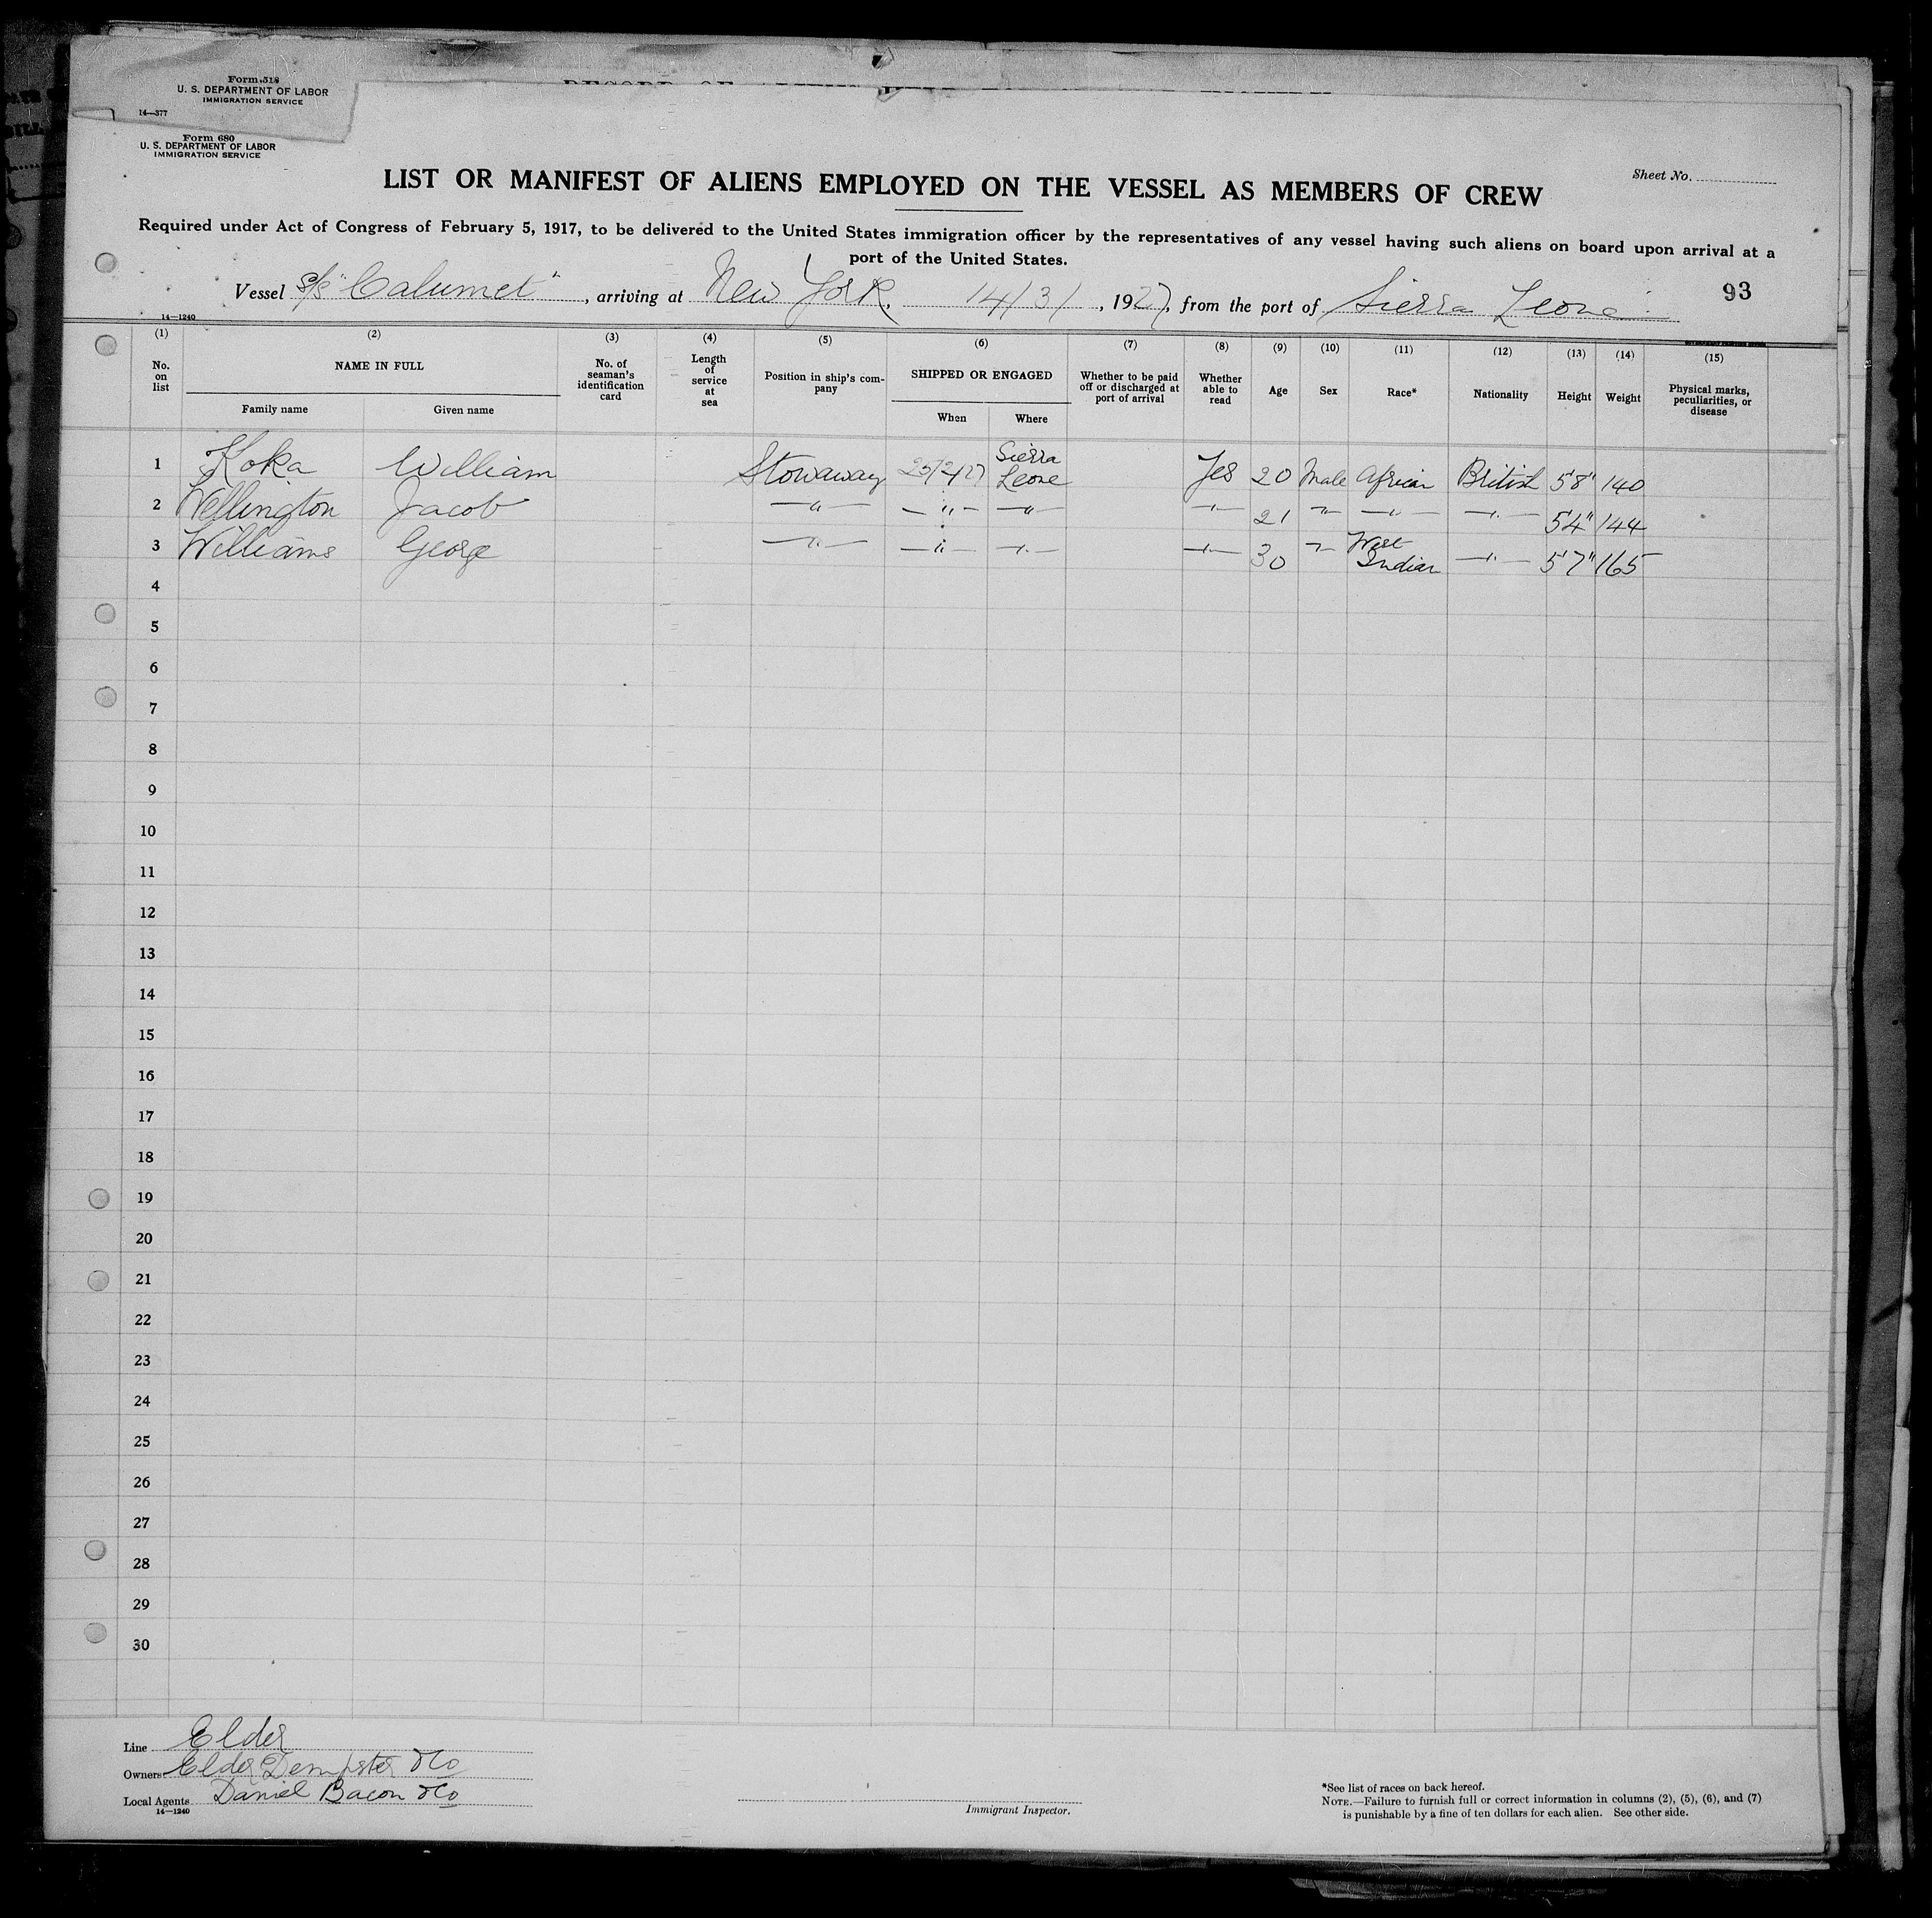 Form 518
U. S. DEPARTMENT OF LABOR
IMMIGRATION SERVICE
14—377
Form 680
U. S. DEPARTMENT OF LABOR
IMMIGRATION SERVICE
Sheet No.
LIST OR MANIFEST OF ALIENS EMPLOYED ON THE VESSEL AS MEMBERS OF CREW
Required under Act of Congress of February 5, 1917, to be delivered to the United States immigration officer by the representatives of any vessel having such aliens on board upon arrival at a
port of the United States.
Vessel S/S "Calumet", arriving at New York, 14/3/, 1927, from the port of Sierra Leone 93
14—1240
(1) (2) (3) (4) (5) (6) (7) (8) (9) (10) (11) (12) (13) (14) (15)
No. on list NAME IN FULL No. of seaman's identification card Length of service at sea Position in ship's company SHIPPED OR ENGAGED Whether to be paid off or discharged at port of arrival Whether able to read Age Sex Race* Nationality Height Weight Physical marks, peculiarities, or disease
Family name Given name When Where
1 Koka William Stowaway 25/2/27 Sierra Leone Yes 20 Male African British 5'8" 140
2 Wellington Jacob —"— —"— —"— —"— 21 —"— —"— —"— 5'4" 144
3 Williams George —"— —"— —"— —"— 30 —"— West Indian —"— 5'7" 165
4
5
6
7
8
9
10
11
12
13
14
15
16
17
18
19
20
21
22
23
24
25
26
27
28
29
30
Line Elder
Owners Elder Dempster & Co
Local Agents Daniel Bacon & Co
14—1240
Immigrant Inspector.
*See list of races on back hereof.
NOTE.—Failure to furnish full or correct information in columns (2), (5), (6), and (7)
is punishable by a fine of ten dollars for each alien. See other side.